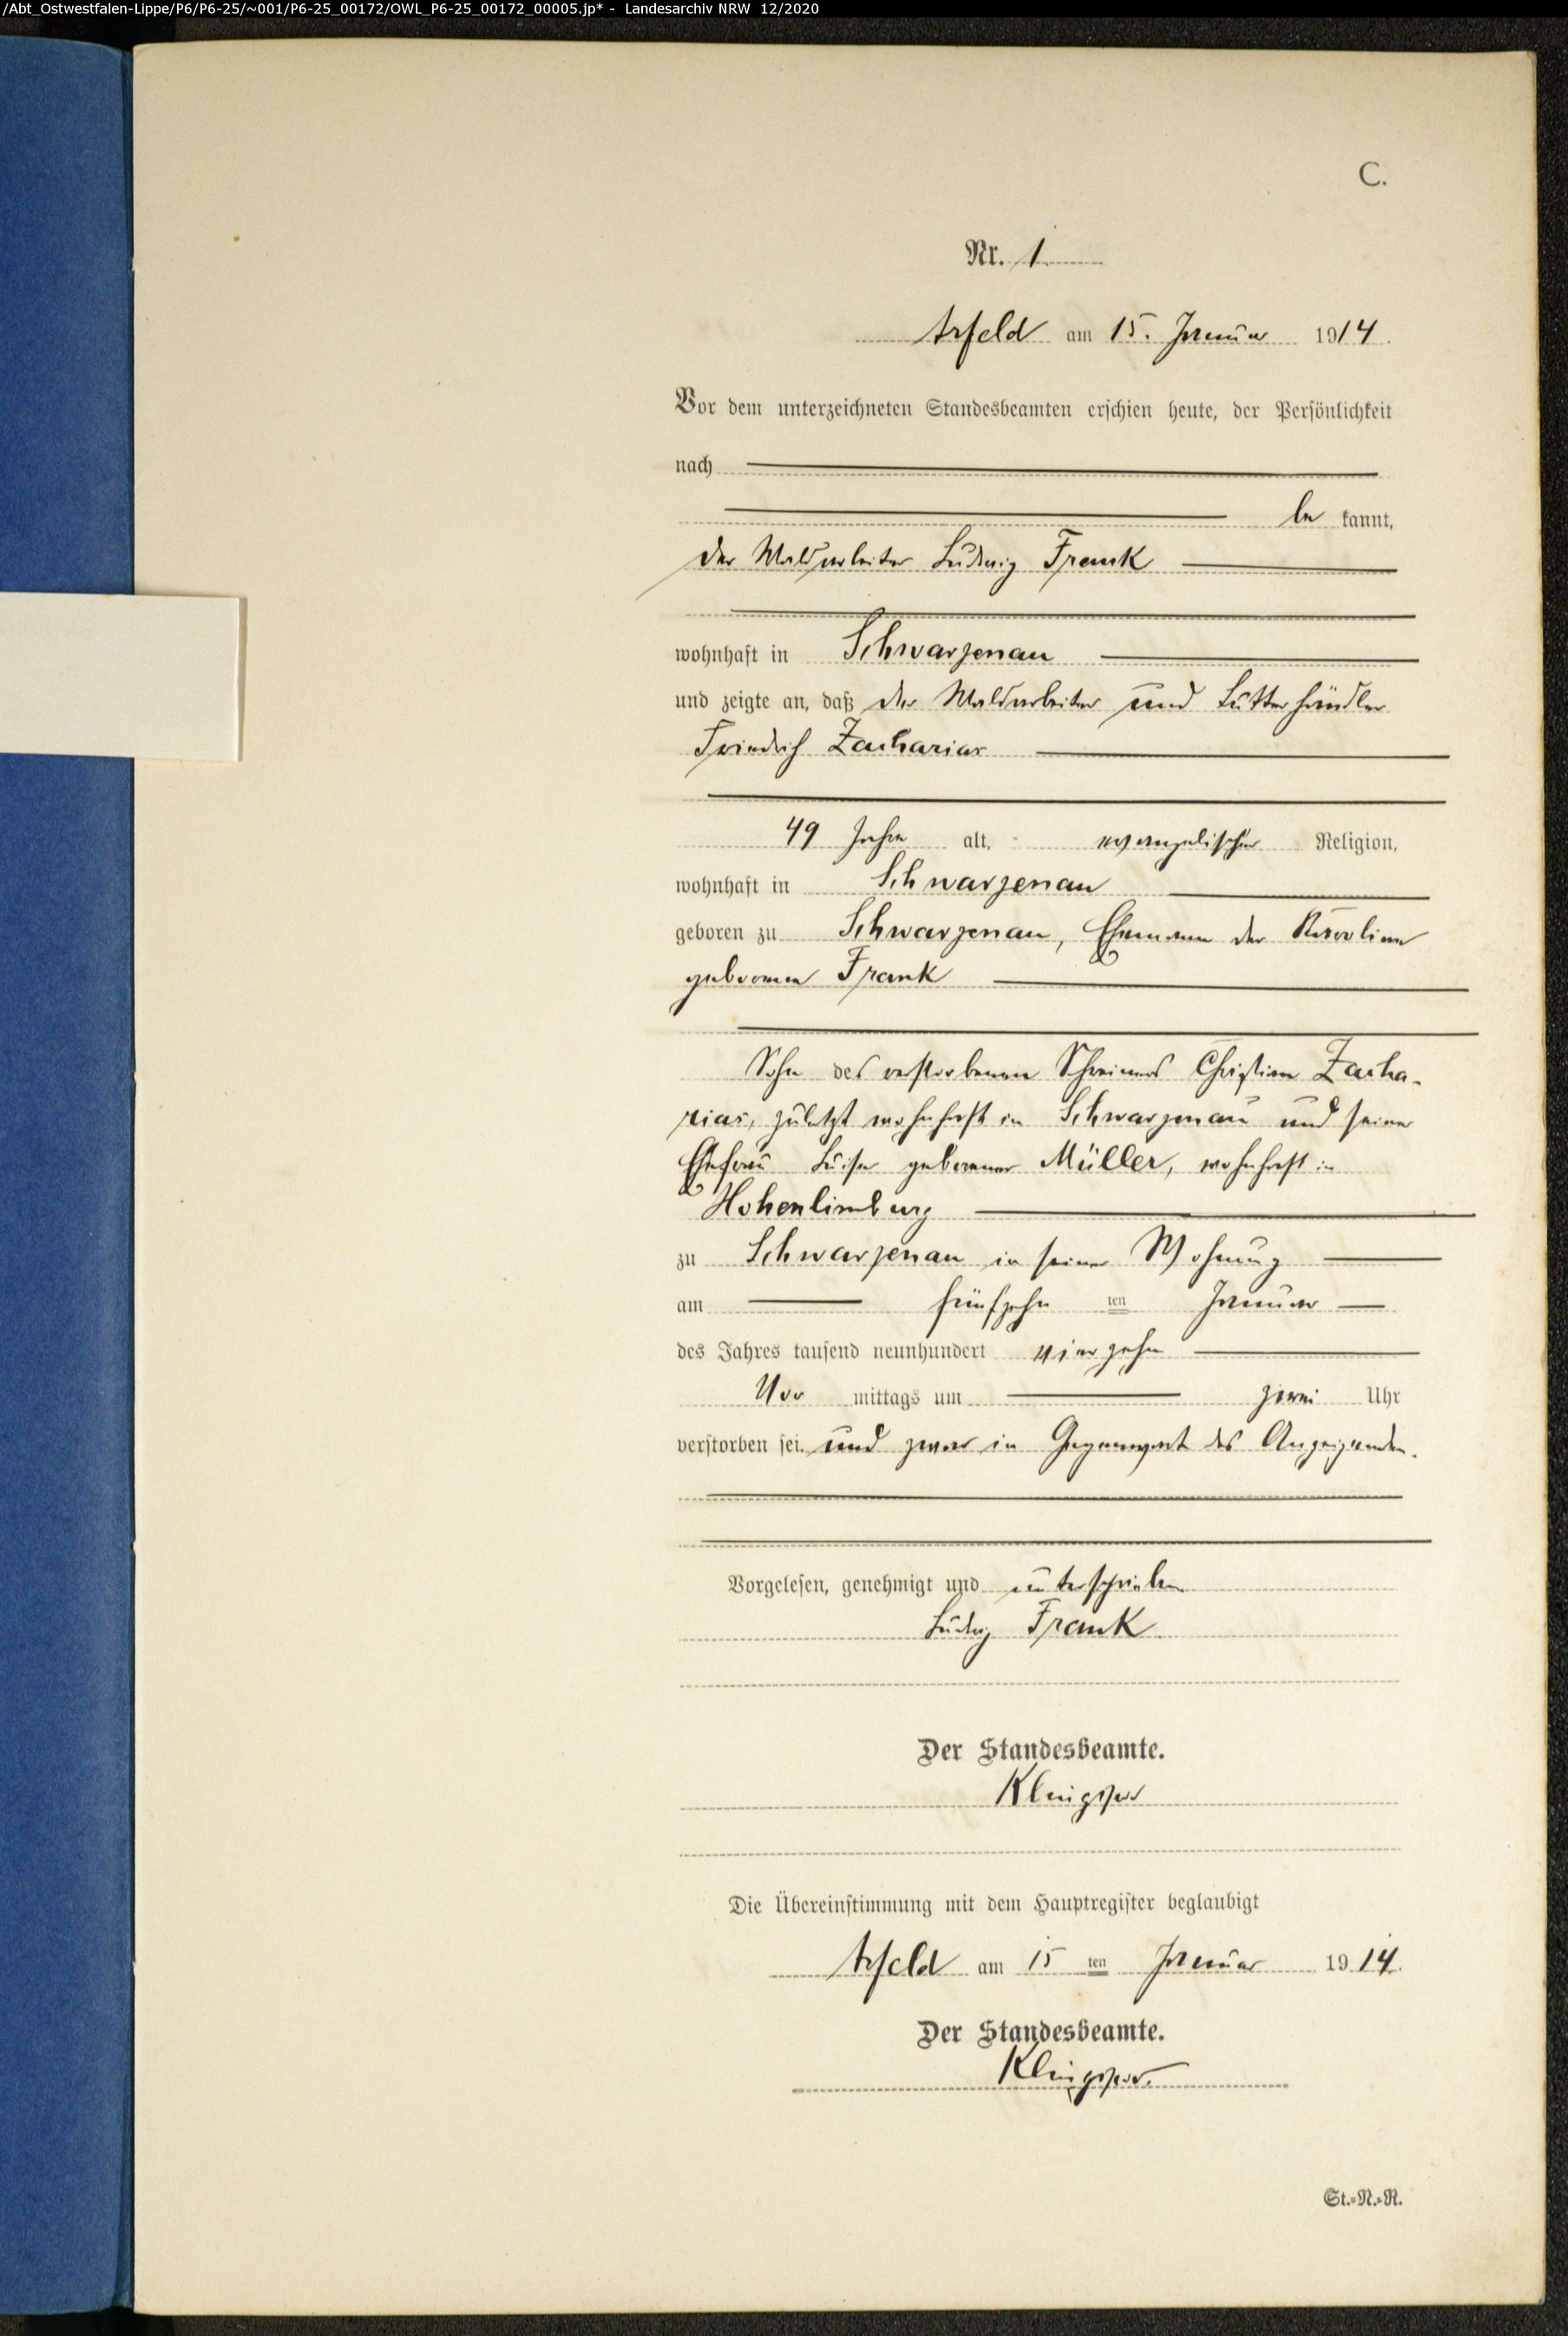 /Abt_Ostwestfalen-Lippe/P6/P6-25/~001/P6-25_00172/OWL_P6-25_00172_00005.jp* - Landesarchiv NRW 12/2020
C.
Nr. 1.
Arfeld am 15. Januar 1914.
Vor dem unterzeichneten Standesbeamten erschien heute, der Persönlichkeit
nach
be kannt,
der Waldarbeiter Ludwig Frank
wohnhaft in Schwarzenau
und zeigte an, daß der Waldarbeiter und händler
Friedrich Zacharias
49 Jahre alt, evangelischer Religion,
wohnhaft in Schwarzenau
geboren zu Schwarzenau, Ehemann der Karoline
geborenen Frank
Sohn des verstorbenen Schreiners Christian Zacha-
rias, zuletzt wohnhaft in Schwarzenau und seiner
Ehefrau Luise geborener Müller, wohnhaft in
Hohenlimburg
zu Schwarzenau in seiner Wohnung
am fünfzehn ten Januar
des Jahres tausend neunhundert vierzehn
Vor mittags um zwei Uhr
verstorben sei. und zwar in Gegenwart des Anzeigenden.
Vorgelesen, genehmigt und unterschrieben
Ludwig Frank
Der Standesbeamte.
Klingspor
Die Übereinstimmung mit dem Hauptregister beglaubigt
Arfeld am 15 ten Januar 1914.
Der Standesbeamte.
Klingspor.
St.-N.-R.